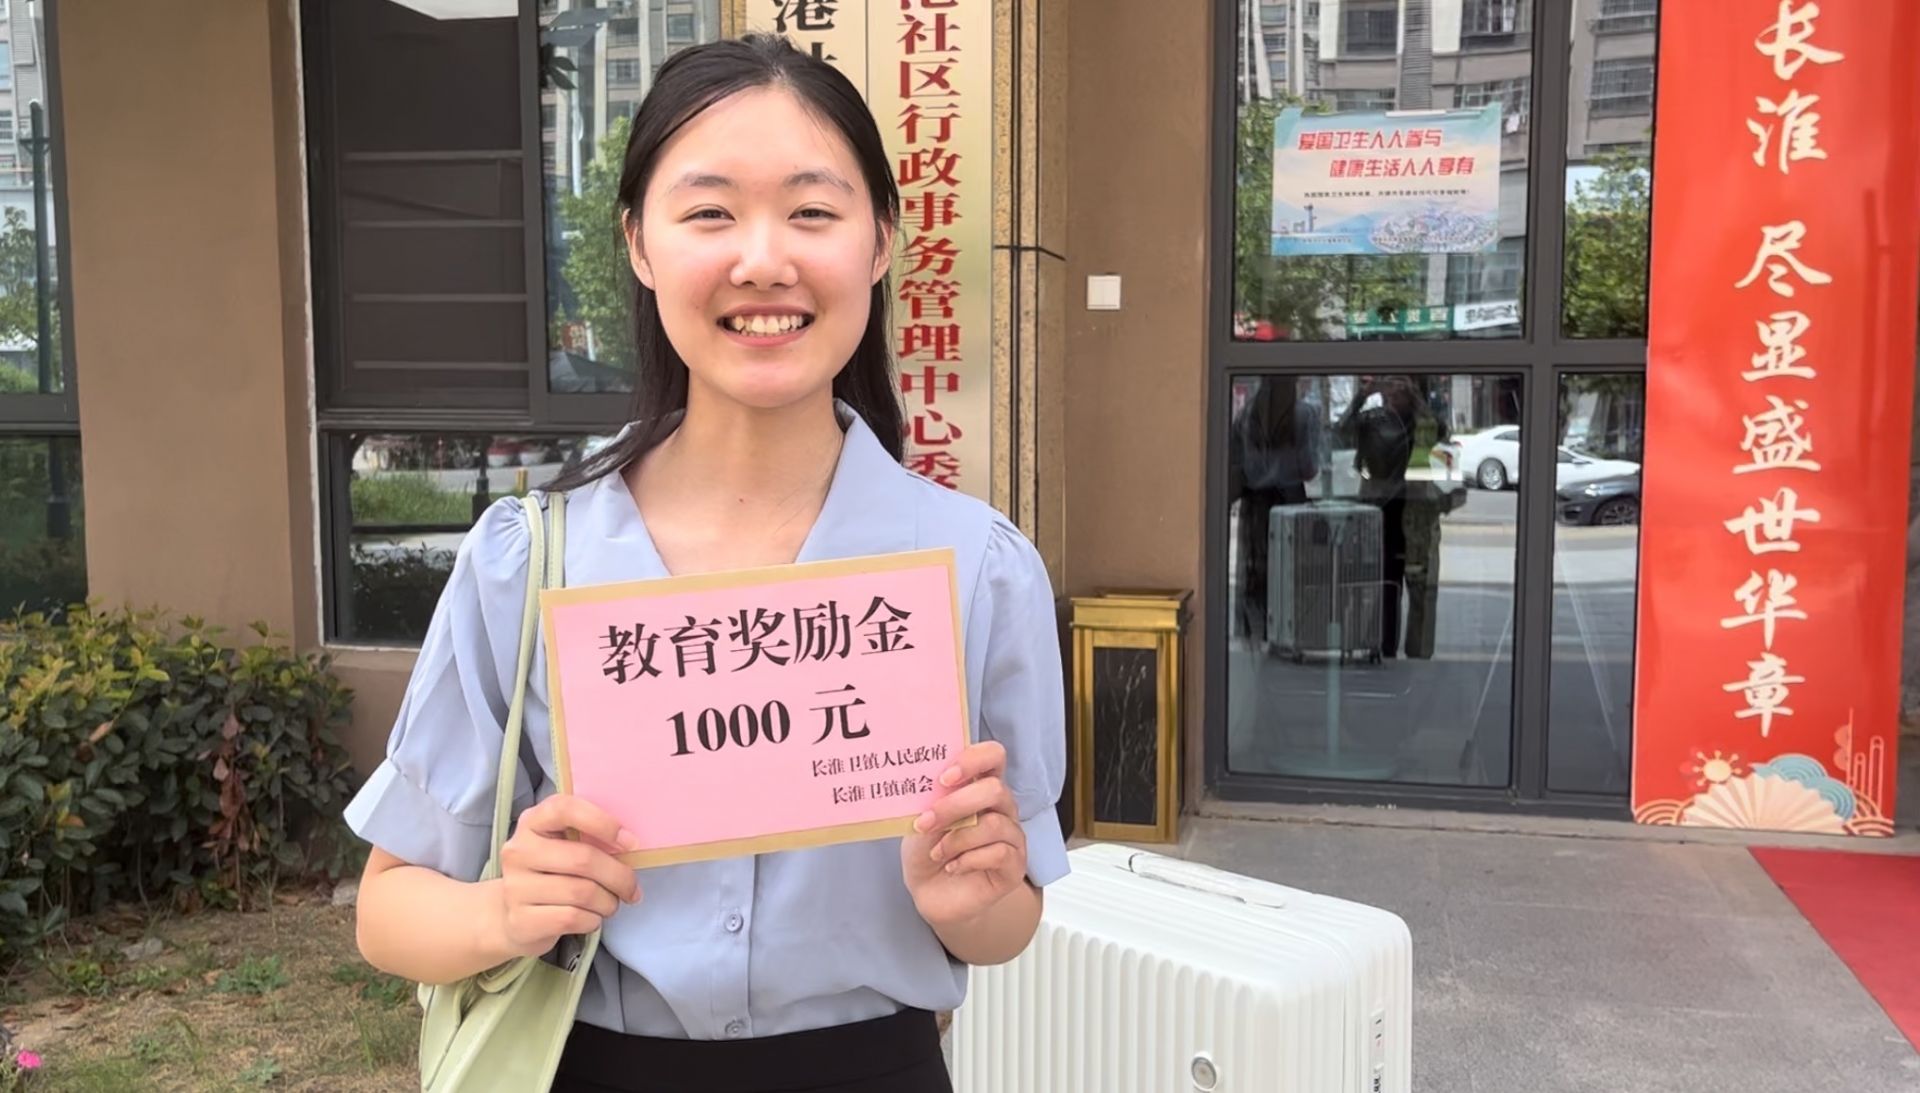 港
社区行政事务管理中心委
爱国卫生人人参与
健康生活人人享有
长淮 尽显盛世华章
教育奖励金
1000 元
长淮卫镇人民政府
长淮卫镇商会